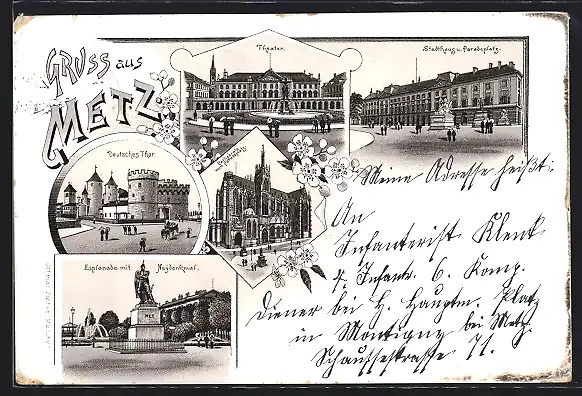 Gruss aus
Metz
Theater.
Stadthaus u. Paradeplatz.
Deutsches Thor.
Esplanade mit Neydenkmal.
Meine Adresse heißt:
An
Infanterist Klenk
4. Infant. 6. Komp.
Diener bei H. Hauptm. Platz
in Montigny bei Metz.
Schaussestrasse 71.